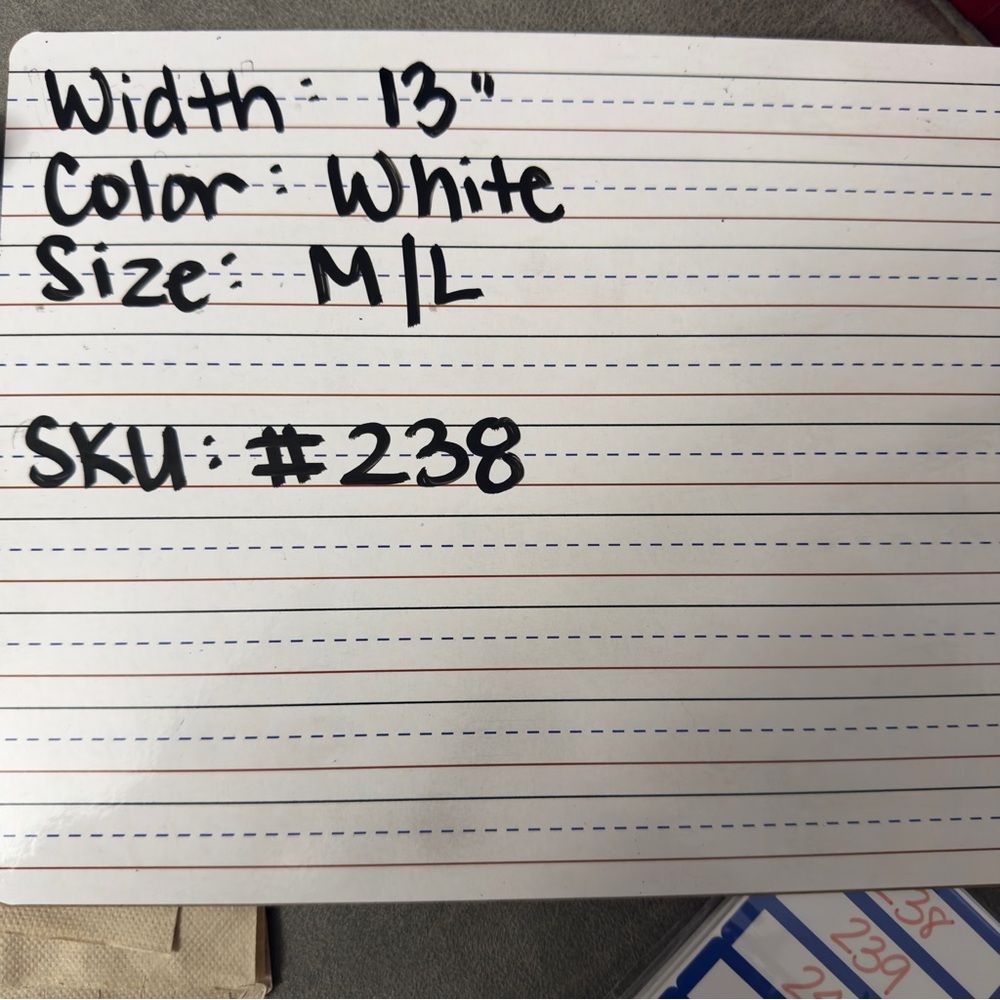 Width: 13"
Color: White
Size: M/L
SKU: #238
238
239